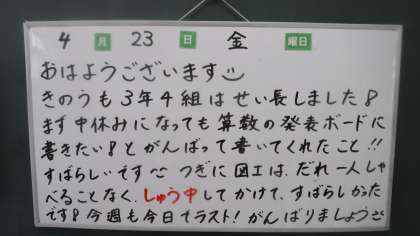 4月23日金曜日
おはようございます
きのうも3年4組はせい長しました8
まず中休みになっても算数の発表ボードに
書きたい8とがんばって書いてくれたこと!!
すばらしいです つぎに図工は、だれ一人しゃ
べることなく、しゅう中してかけて、すばらしかった
です8今週も今日でラスト!がんばりましょう